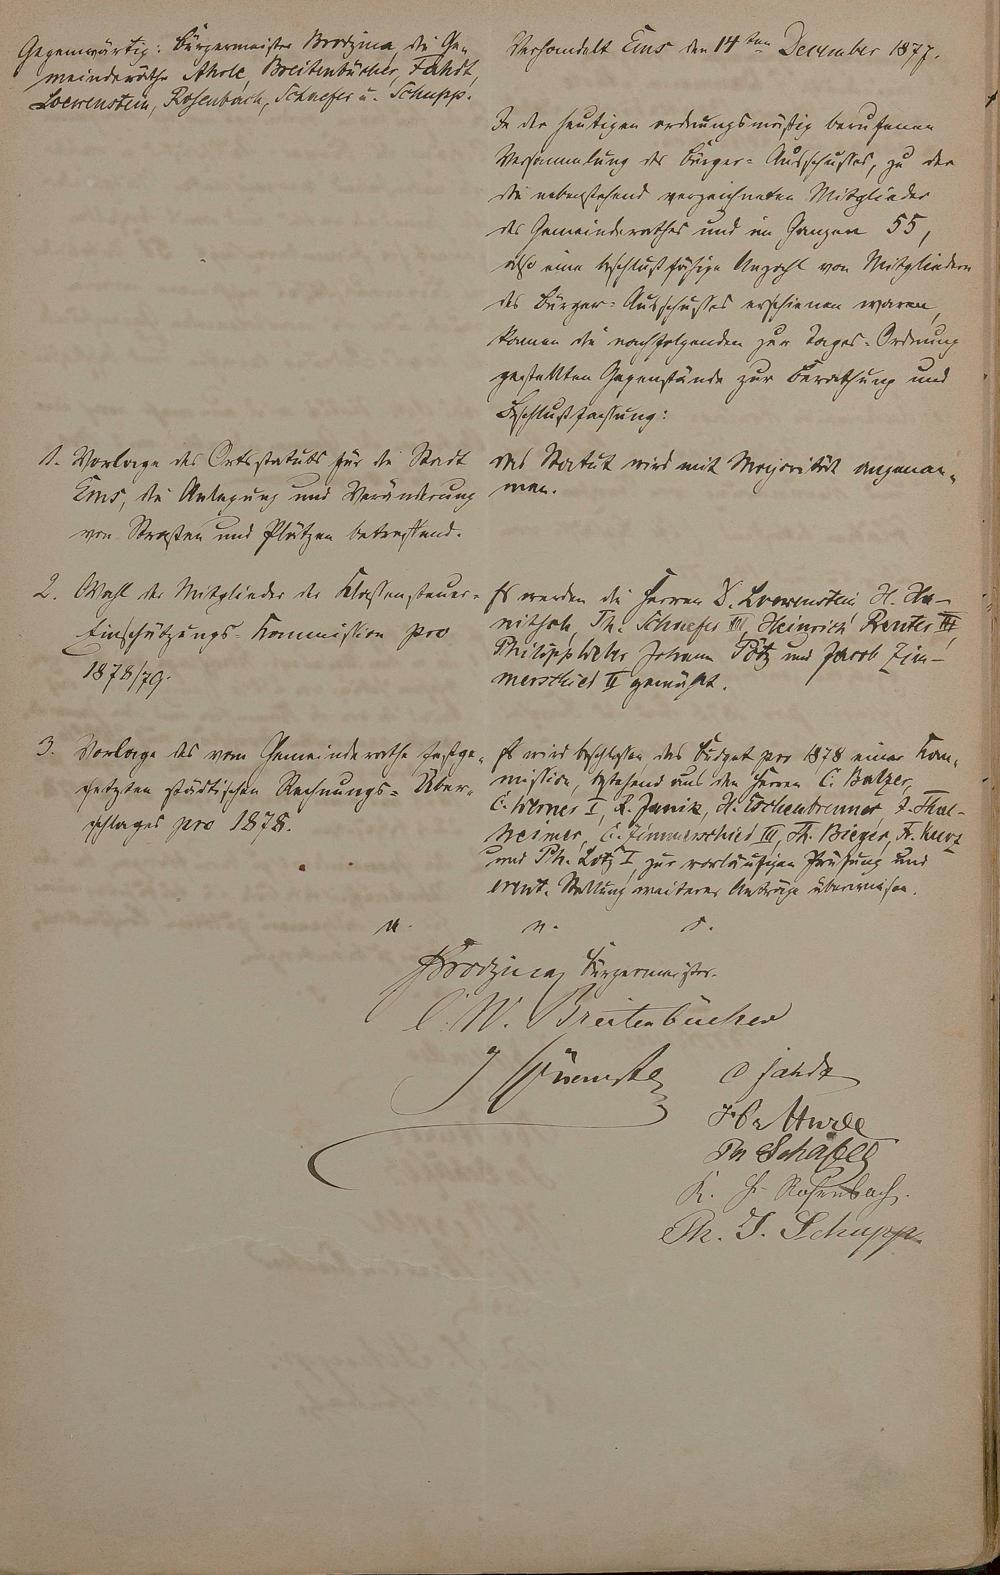 Gegenwärtig: Bürgermeister Brodzina, die Ge-
meinderäthe Breitenbücher, Fahdt,
Loewenstein, Rosenbach, Schaefer u. Schupp.
Verhandelt Ems den 14ten December 1877.
In der heutigen ordnungsmäßig berufenen
Versammlung des Bürger-Ausschusses, zu der
die nebenstehend verzeichneten Mitglieder
des Gemeinderathes und im Ganzen 55,
also eine beschlußfähige Anzahl von Mitgliedern
des Bürger-Ausschusses erschienen waren,
kamen die nachfolgenden zur Tages-Ordnung
gestellten Gegenstände zur Berathung und
Beschlußfassung:
1. Vorlage des Ortsstatuts für die Stadt
Ems, die Anlegung und Veränderung
von Straßen und Plätzen betreffend.
das Statut wird mit Majorität angenom-
men.
2. Wahl der Mitglieder der Klassensteuer-
Einschätzungs-Kommission pro
1878/79.
Es werden die Herren Loewenstein H.
Ph. Schaefer III, Heinrich Reuter III,
Philipp Weber Johann und Jacob Zim-
merschied II gewählt.
3. Vorlage des vom Gemeinderathe festge-
setzten städtischen Rechnungs-Über-
schlages pro 1878.
Es wird beschlossen das Budget pro 1878 einer Kom-
mission, bestehend aus den Herren C. Balzer,
C. Werner I, H. Eschenbrenner, J. Thal-
heimer, C. Zimmerschied III, Th. Bieger, Fr. Kurz
und Ph. Lotz I, zur vorläufigen Prüfung und
event. Stellung weiterer Anträge überwiesen.
Brodzina, Bürgermeister.
C. W. Breitenbücher
Fahdt
Ph Schäfer
K. Rosenbach.
Ph. J. Schupp